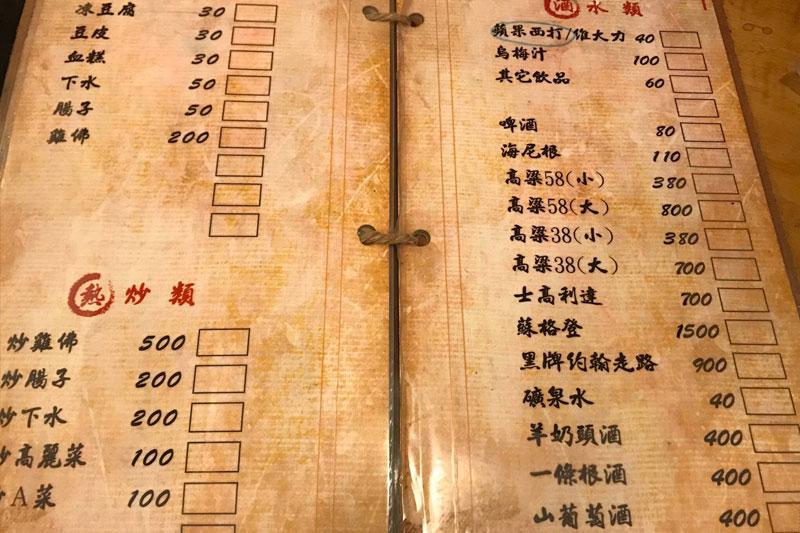 凍豆腐 30
豆皮 30
血糕 30
下水 50
腸子 50
雞佛 200
熱炒類
炒雞佛 500
炒腸子 200
炒下水 200
炒高麗菜 100
A菜 100
酒水類
蘋果西打/維大力 40
烏梅汁 100
其它飲品 60
啤酒 80
海尼根 110
高梁58(小) 380
高梁58(大) 800
高梁38(小) 380
高梁38(大) 700
士高利達 700
蘇格登 1500
黑牌約翰走路 900
礦泉水 40
羊奶頭酒 400
一條根酒 400
山葡萄酒 400